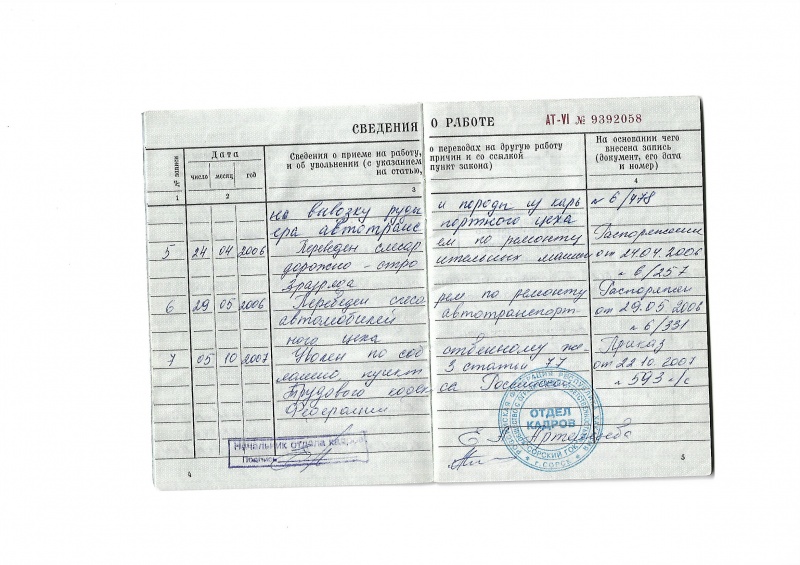 СВЕДЕНИЯ О РАБОТЕ АТ-VI № 9392058
№ записи
Дата
число месяц год
Сведения о приеме на работу, о переводах на другую работу
и об увольнении (с указанием причин и со ссылкой
на статью, пункт закона)
На основании чего
внесена запись
(документ, его дата
и номер)
1 2 3 4
на вывозку руды и породы из карь № 6/478
ера автотранспортного цеха
5 24 04 2006 Переведен слесарем по ремонту Распоряжение
дорожно-строительных машин от 24.04.2006
3 разряда № 6/257
6 29 05 2006 Переведен слесарем по ремонту Распоряжен
автомобилей автотранспорт от 29.05 2006
ного цеха № 6/331
7 05 10 2007 Уволен по собственному же- Приказ
ланию пункт 3 статьи 77 от 22.10.2007
Трудового кодекса Российской № 593 к/с
Федерации
ОТДЕЛ
КАДРОВ
Начальник отдела кад
Подпись
4 5